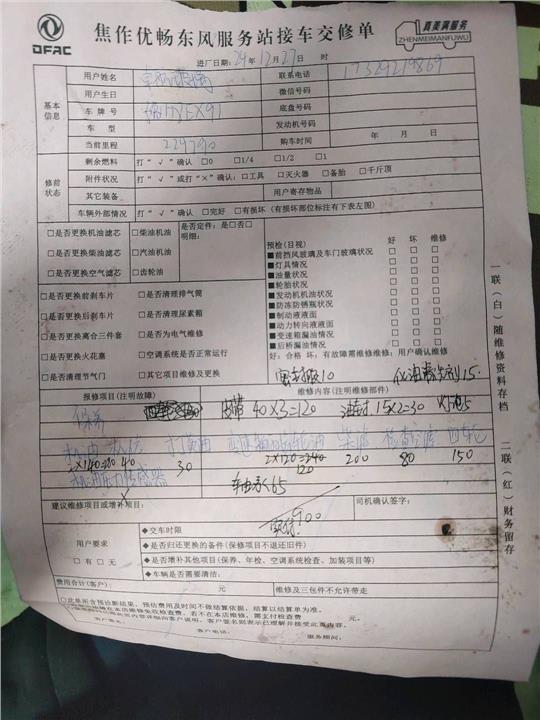 DFAC
焦作优畅东风服务站接车交修单
真美满服务
ZHENMEIMANFUWU
进厂日期: 24年12月27日 时
基本信息
用户姓名 联系电话 17329219869
用户生日 微信号码
车牌号 底盘号码
车型 发动机号码
当前里程 229790 购车时间 年 月 日
修前状态
剩余燃料 打“√”确认 □0 □1/4 □1/2 □1
附件状况 打“√”或打“×”确认: □工具 □灭火器 □备胎 □千斤顶
其它装备 用户寄存物品
车辆外部情况 打“√”确认 □完好 □有损坏 (有损坏部位标注有下表左图)
□是否更换机油滤芯 □柴油机油 是否定件: 是□否□
□是否更换柴油滤芯 □汽油机油 明细:
□是否更换空气滤芯 □齿轮油
□是否更换前刹车片 □是否清理排气筒
□是否更换后刹车片 □是否清理尿素箱
□是否更换离合三件套 □是否为电气维修
□是否更换火花塞 □空调系统是否正常运行
□是否清理节气门 □其它项目维修及更换
预检(目视) 好 坏 维修
■前挡风玻璃及车门玻璃状况 □ □ □
■灯具情况 □ □ □
■油量状况 □ □ □
■轮胎状况 □ □ □
■发动机机油状况 □ □ □
■防冻防锈瓶状况 □ □ □
■制动液液面 □ □ □
■动力转向液液面 □ □ □
■变速箱漏油情况 □ □ □
■后桥漏油情况 □ □ □
好: 合格 坏: 有故障需维修维修: 用户确认维修
10 15
报修项目(注明故障) 维修内容(注明维修部件)
保养 皮带 40×3=120 15×2=30
机油 机滤 打黄油 齿轮油
2×140=280 40 30 2×120=240 200 80 150
120
机油压力传感器 轴承65
建议维修项目或增补项目: 司机确认签字:
实付900
用户要求
□有 □无
◆交车时限
◆是否归还更换的备件(保修项目不退还旧件)
◆是否增补其他项目(保养、年检、空调系统检查、加装项目等)
◆车辆是否需要清洁:
费用合计(客户): 元 维修及三包件不允许带走
□此单所含预诊断结果, 预估费用及时间不做结算依据, 结算以结算单为准。
客户签名: 客户电话: 服务顾问:
一联(白)随维修资料存档
二联(红)财务留存